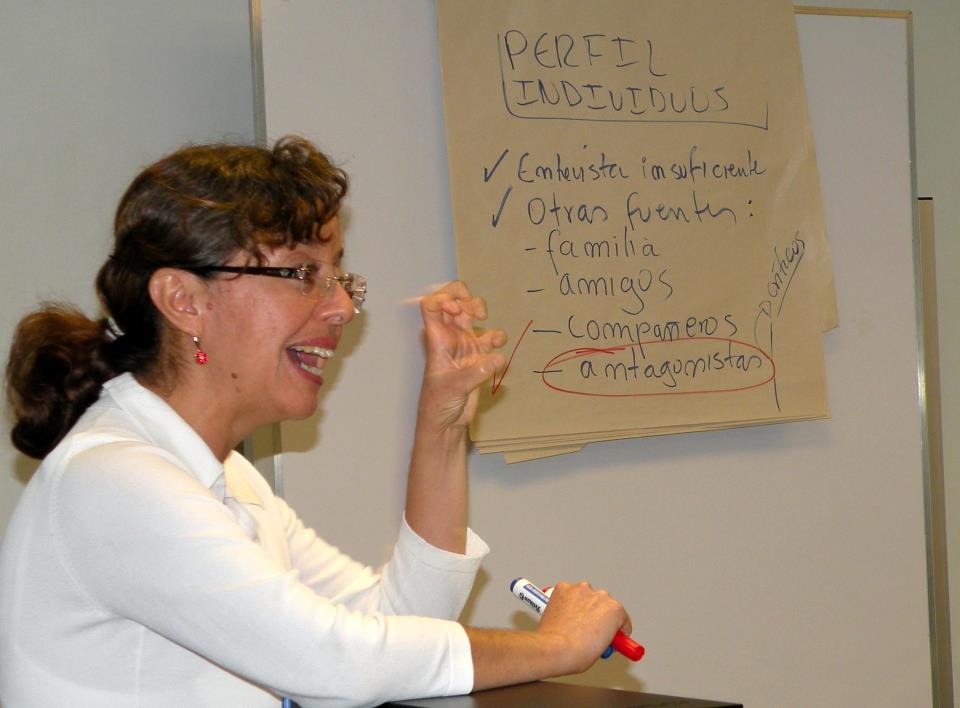 PERFIL
INDIVIDUOS
✓ Entevista insuficiente
✓ Otras fuentes:
- familia
- amigos
- compañeros
- antagonistas
críticos